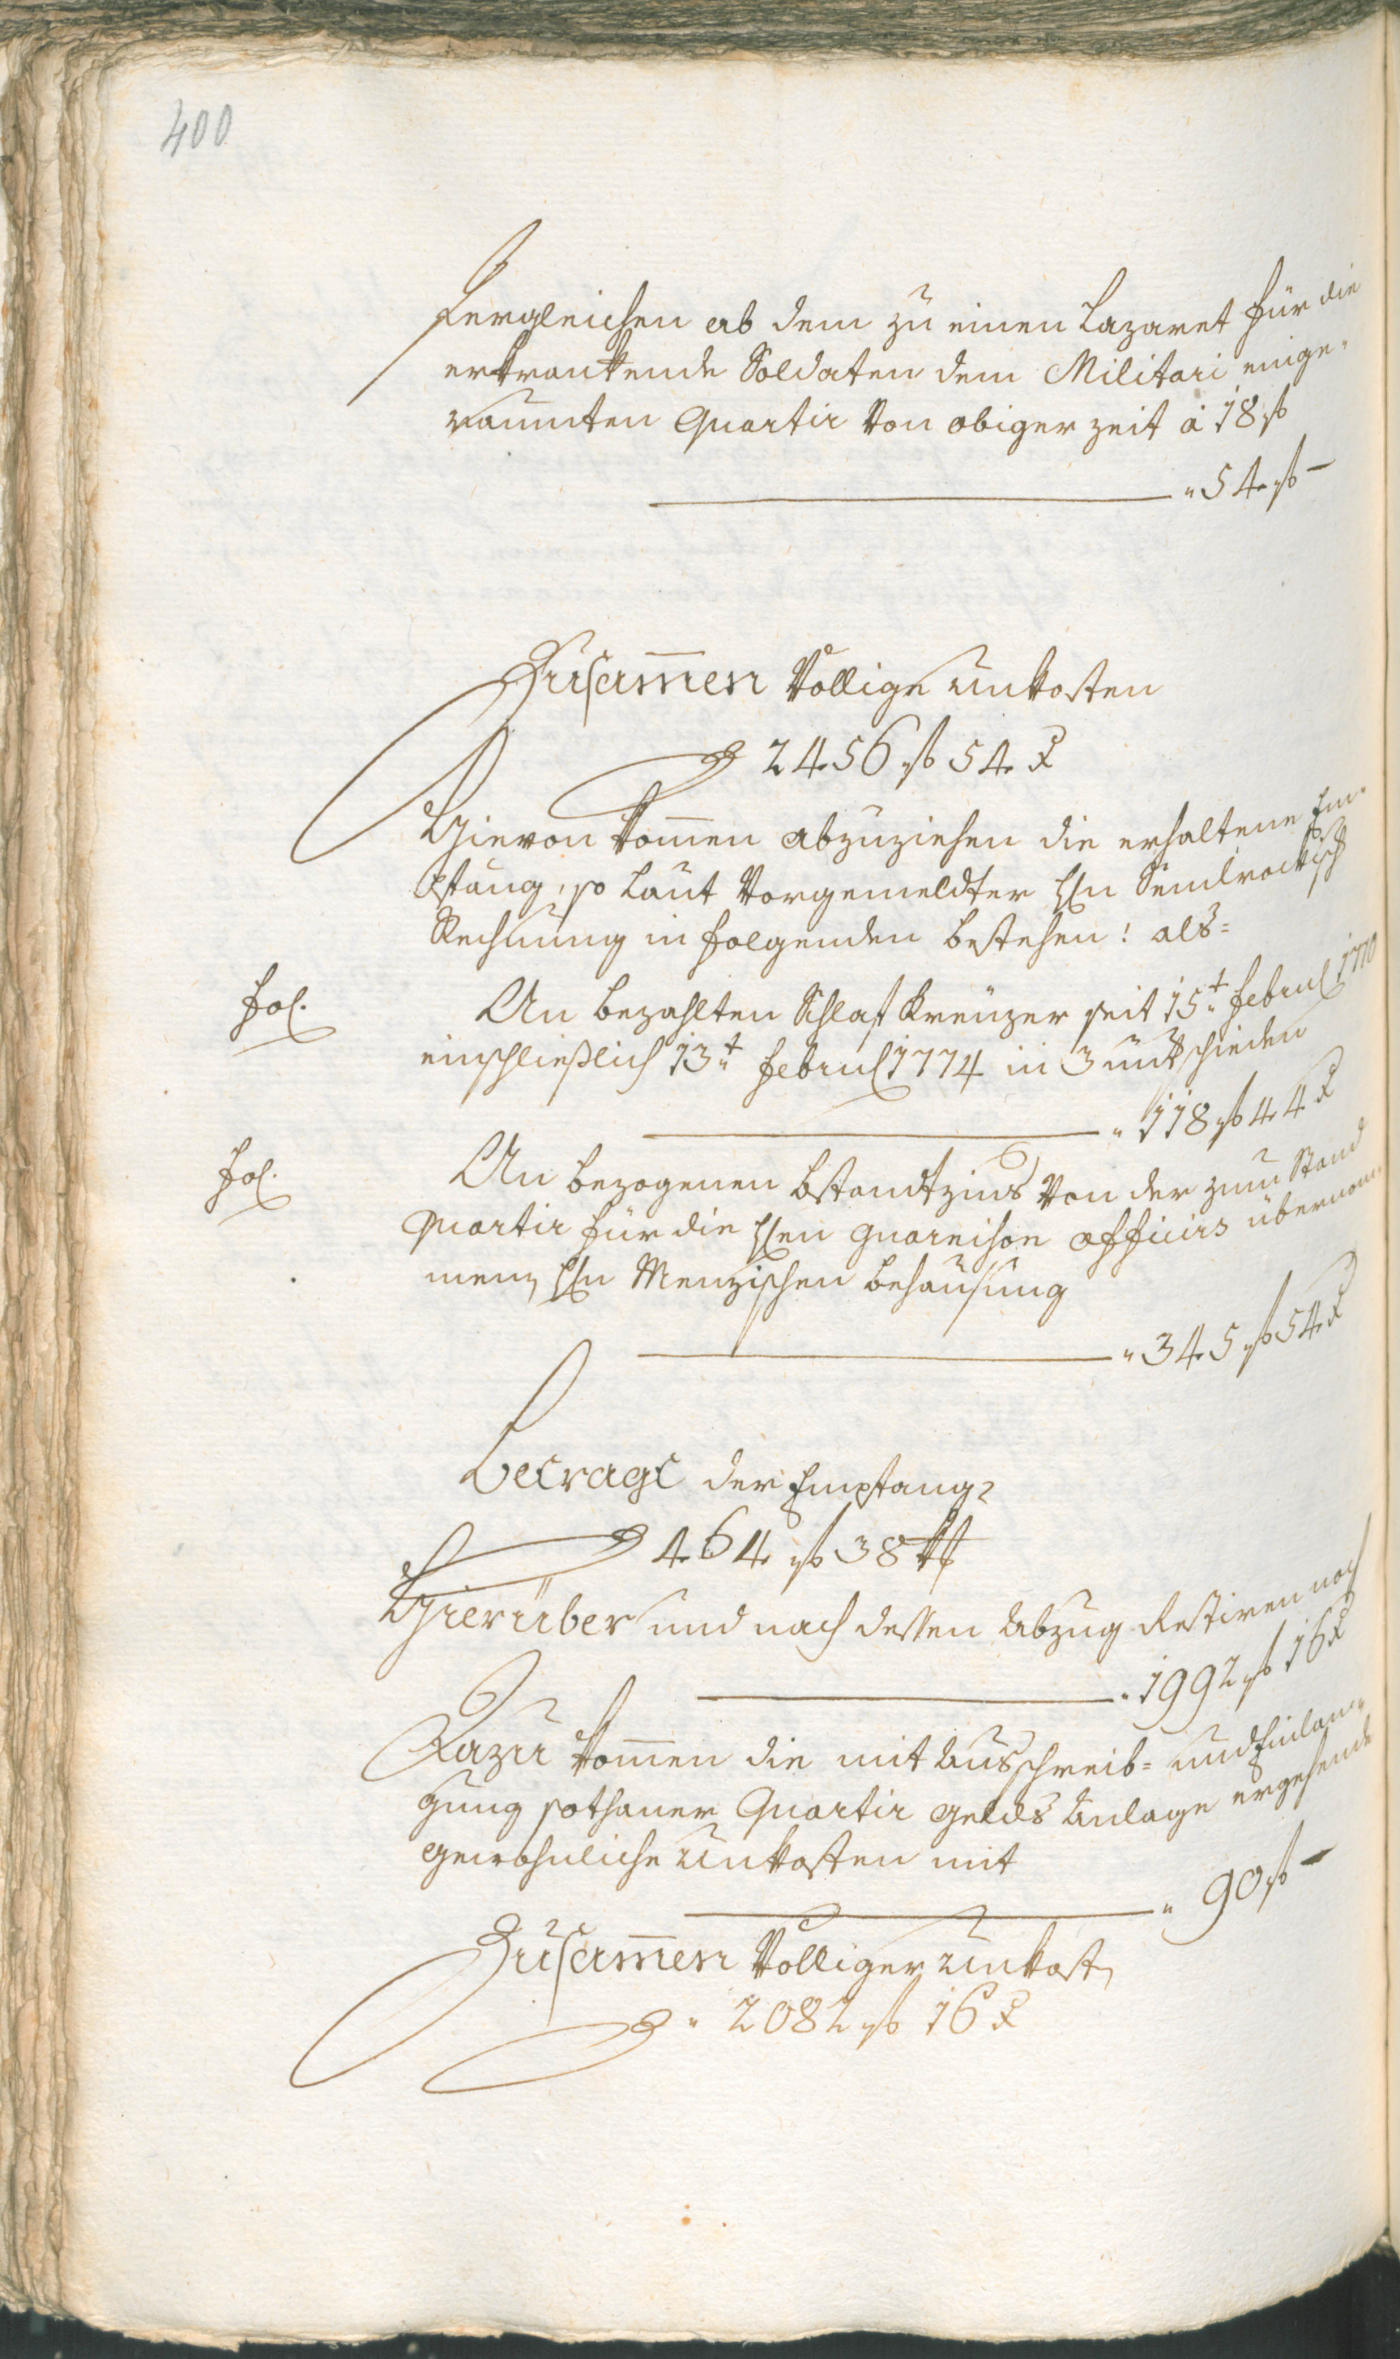 400
Dergleichen ab dem zu einen Lazaret für die
erkrankende Soldaten dem Militari einge-
raumten Quartir von obiger zeit à 18 f
" 54 f –
Zusam̅en Völlige unkosten
2456 f 54 x
Hievon kom̅en abzuziehen die erhaltene Em-
pfäng, so laut Vorgemeldter Hn
Rechnung in folgenden bestehen: als=
fol.
An bezahlten Schlaf Kreuzer seit 15t. Februl 1770
einschließlich 13t Februl 1774 in 3 unterschieden
" 118 f 44 x
fol.
An bezogenen Bstandtzins von der zum Stand
Quartir für die Hen guarnison officirs übernom-
men Hn Menzischen behausung
" 345 f 54 x
Betragt der Empfang
464 f 38 x
Hierüber und nach dessen Abzug Restiren noch
" 1992 f 16 x
Dazu kom̅en die mit Ausschreib- und Einlan-
gung sothaner Quartir gelds Anlage ergehende
gewohnliche Unkosten mit
" 90 f –
Zusam̅en Völliger Unkost
" 2082 f 16 x